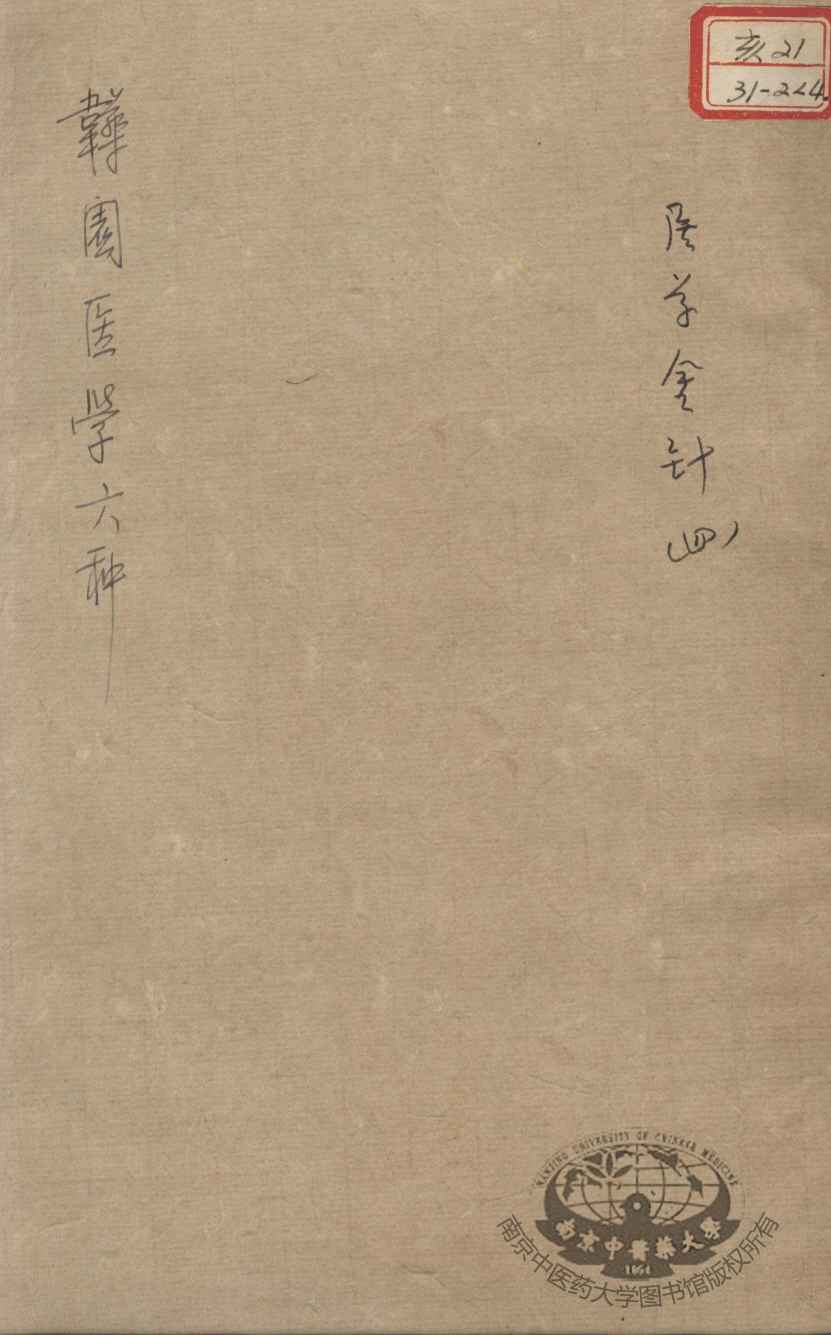 亥21
31-224.
韡園医學六种
医学金针 四
NANJING UNIVERSITY OF CHINESE MEDICINE
南京中醫藥大學
1954
南京中医药大学图书馆版权所有